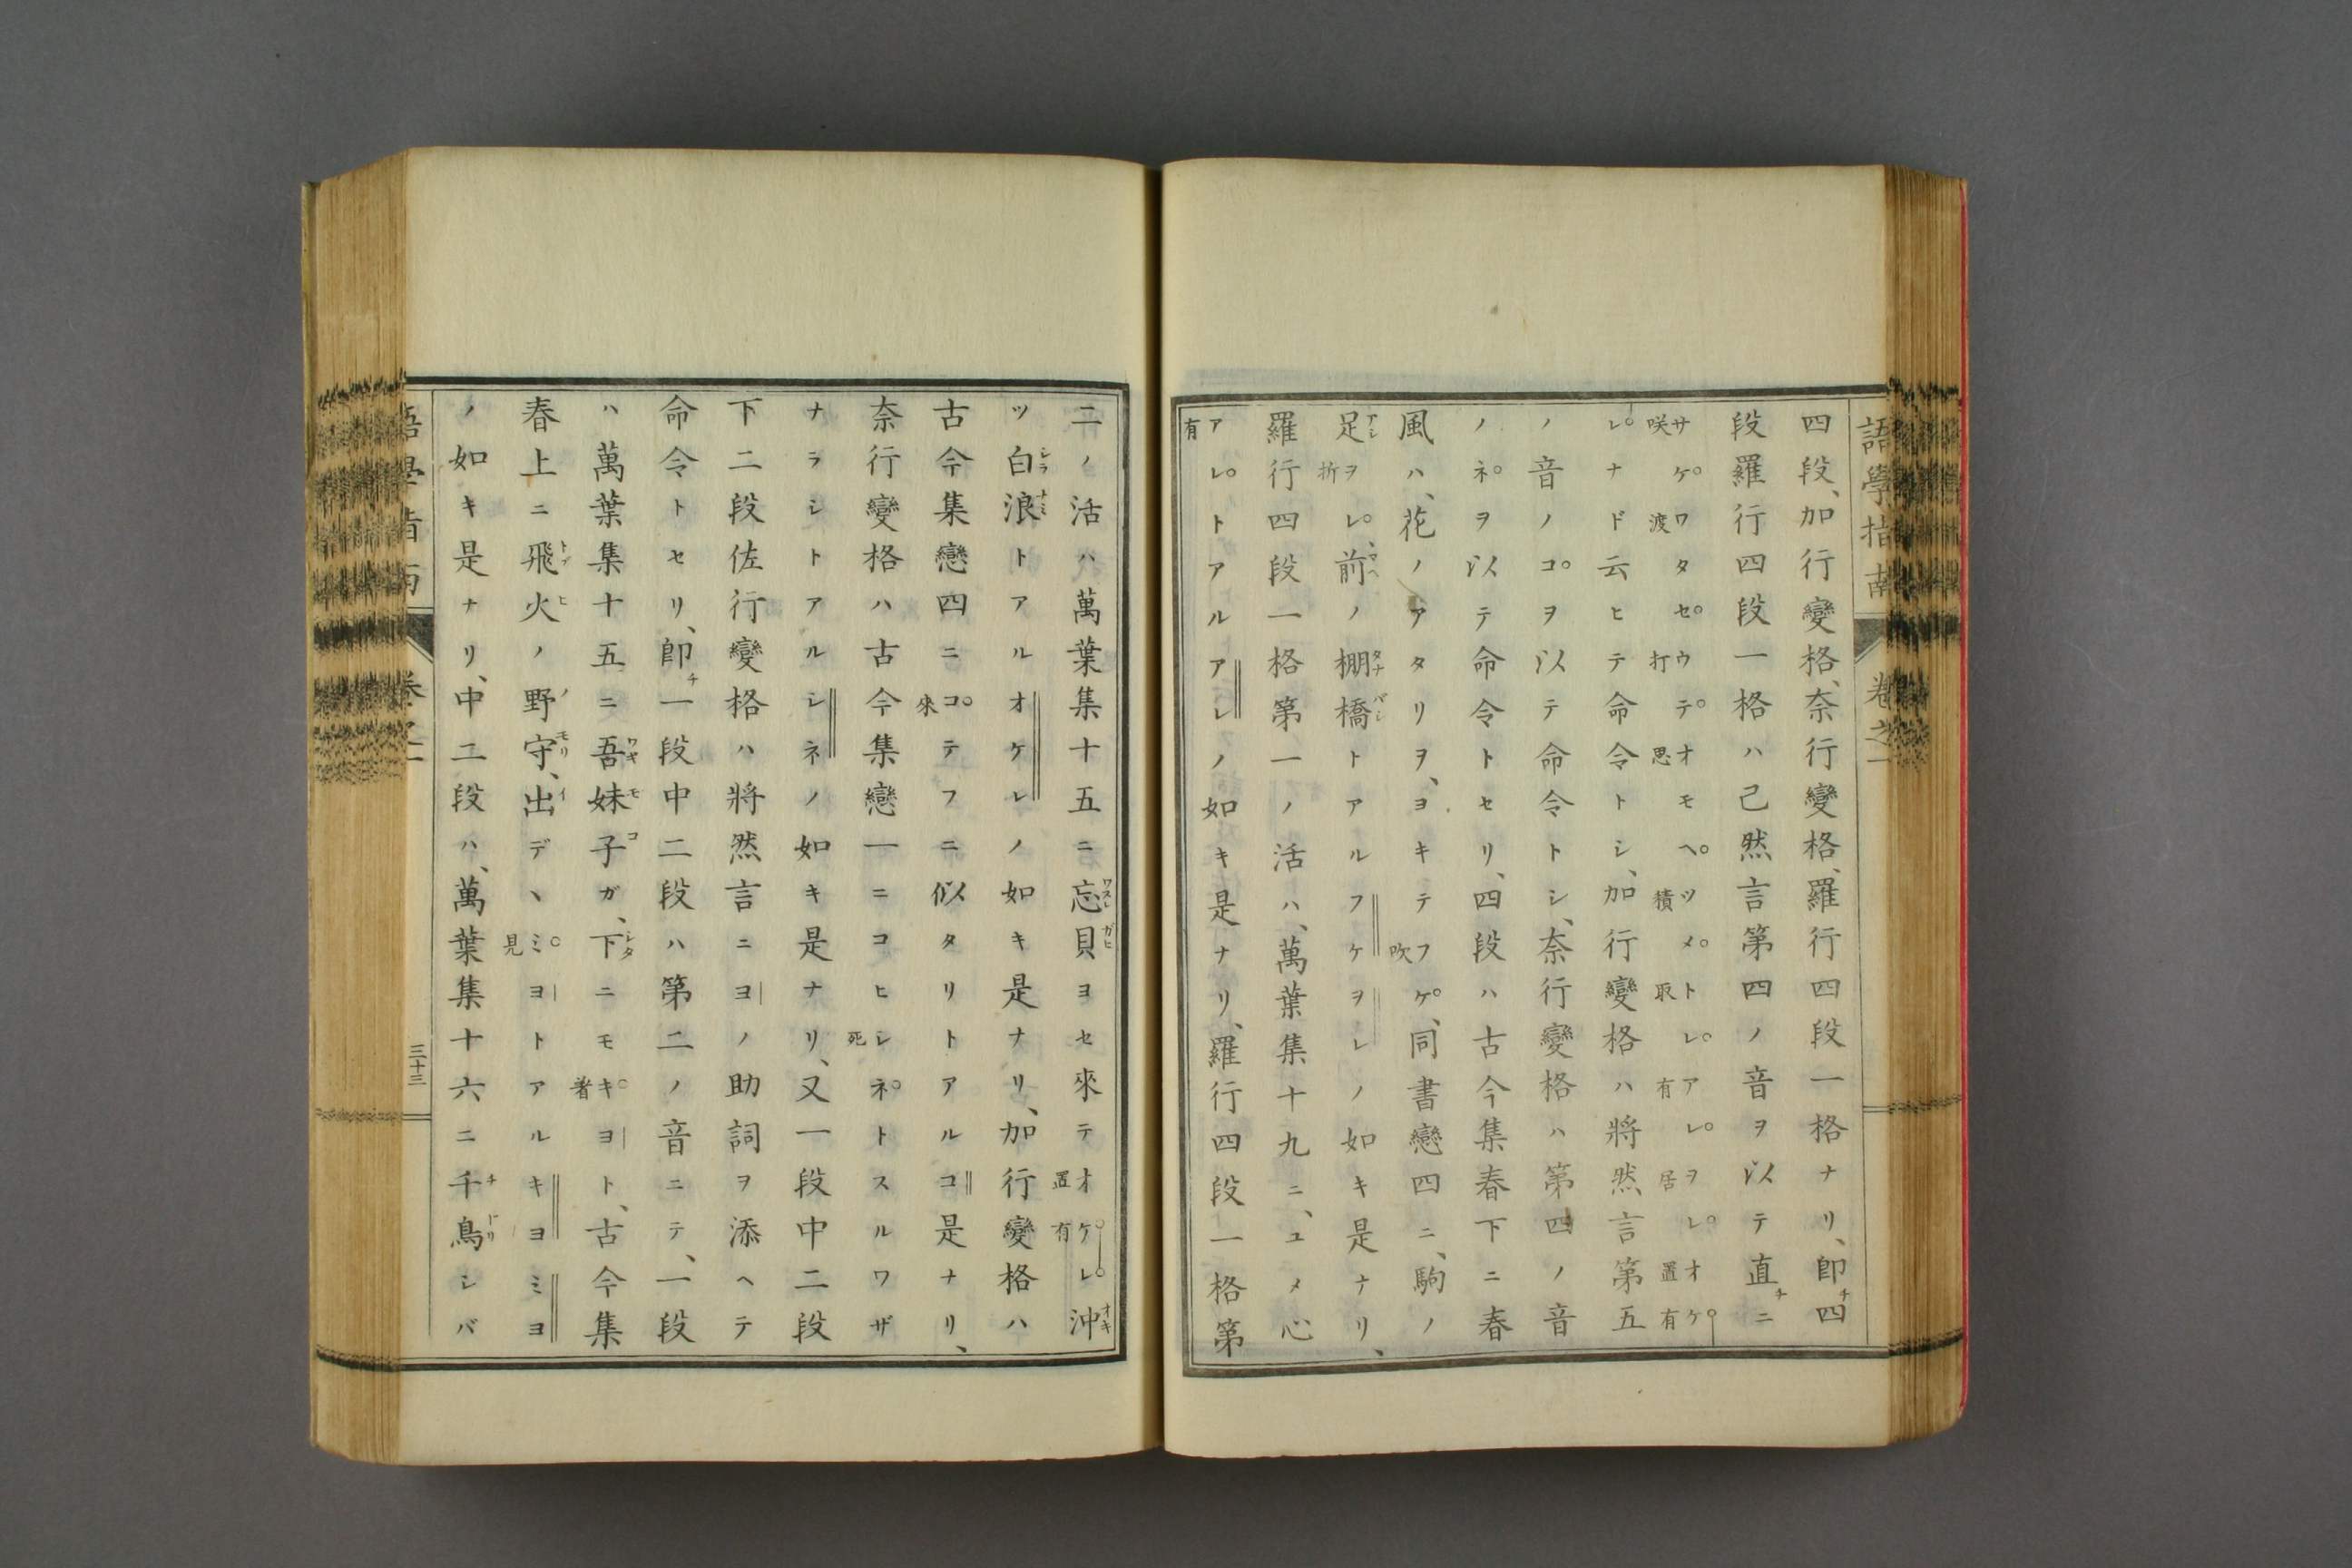 語學指南 卷之二
四段、加行變格、奈行變格、羅行四段一格ナリ、卽チ四
段羅行四段一格ハ已然言第四ノ音ヲ以テ直チニ
サケワタセウテオモヘツメトレアレヲレオケ
咲渡打思積取有居置有
レナド云ヒテ命令トシ、加行變格ハ將然言第五
ノ音ノコヲ以テ命令トシ、奈行變格ハ第四ノ音
ノネヲ以テ命令トセリ、四段ハ古今集春下ニ春
風ハ、花ノアタリヲ、ヨキテフ吹ケ、同書戀四ニ、駒ノ
足アシヲ折レ、前マヘノ棚橋タナバシトアルフケヲレノ如キ是ナリ、
羅行四段一格第一ノ活ハ、萬葉集十九ニ、ユメ心
ア有レトアルアレノ如キ是ナリ、羅行四段一格第
二ノ活ハ萬葉集十五ニ忘ワスレ貝ガヒヨセ來テオ置ケ有レ沖オキ
ツ白シラ浪ナミトアルオケレノ如キ是ナリ、加行變格ハ
古今集戀四ニコ來テフニ似タリトアルコ是ナリ、
奈行變格ハ古今集戀一ニコヒシ死ネトスルワザ
ナラシトアルシネノ如キ是ナリ、又一段中二段
下二段佐行變格ハ將然言ニヨノ助詞ヲ添ヘテ
命令トセリ、卽チ一段中二段ハ第二ノ音ニテ、一段
ハ萬葉集十五ニ吾ワギ妹モ子コガ、下シタニモキ着ヨト、古今集
春上ニ飛トブ火ヒノノ野ノ守モリ、出イデヽミ見ヨトアルキヨミヨ
ノ如キ是ナリ、中二段ハ、萬葉集十六ニ千チ鳥ドリシバ
三十三